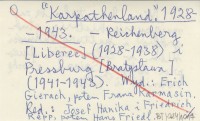 "Karpathenland" 1928-
-1943. - Reichenberg
[Liberec] (1928-1938) i
Pressburg [Bratysława]
(1941-1943). Wyd: Erich
Gierach, pote Franz Karmasin.
Red: Josef Hanika i Friedrich
Repp, pote Hans Friedl.